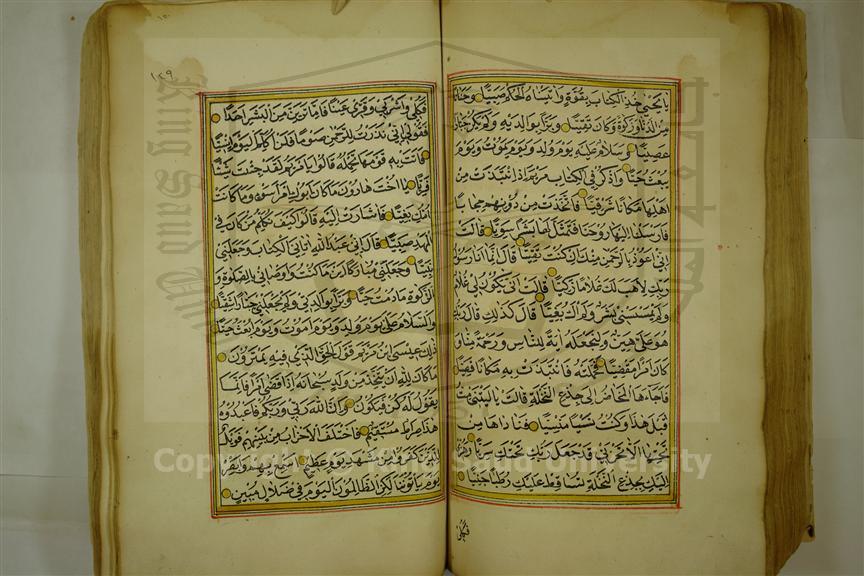 يا يحيى خذ الكتاب بقوة واتيناه الحكم صبيا وحنانا
من لدنا وزكوة وكان تقيا وبرا بوالديه ولم يكن جبارا
عصيا وسلام عليه يوم ولد ويوم يموت ويوم
يبعث حيا واذكر في الكتاب مريم اذ انتبذت من
اهلها مكانا شرقيا فاتخذت من دونهم حجابا
فارسلنا اليها روحنا فتمثل لها بشرا سويا قالت
اني اعوذ بالرحمن منك ان كنت تقيا قال انما انا رسول
ربك لاهب لك غلاما زكيا قالت انى يكون لي غلام
ولم يمسسني بشر ولم اك بغيا قال كذلك قال ربك
هو علي هين ولنجعله اية للناس ورحمة منا و
كان امرا مقضيا فحملته فانتبذت به مكانا قصيا
فاجاءها المخاض الى جذع النخلة قالت يا ليتني مت
قبل هذا وكنت نسيا منسيا فناداها من
تحتها الا تحزني قد جعل ربك تحتك سريا وهزي
اليك بجذع النخلة تساقط عليك رطبا جنيا
فكلي
١٢٩
فكلي واشربي وقري عينا فاما ترين من البشر احدا
فقولي اني نذرت للرحمن صوما فلن اكلم اليوم انسيا
فاتت به قومها تحمله قالوا يا مريم لقد جئت شيئا
فريا يا اخت هارون ما كان ابوك امرا سوء وما كانت
امك بغيا فاشارت اليه قالوا كيف نكلم من كان في
المهد صبيا قال اني عبد الله اتاني الكتاب وجعلني
نبيا وجعلني مباركا اين ما كنت واوصاني بالصلوة و
الزكوة ما دمت حيا وبرا بوالدتي ولم يجعلني جبارا شقيا
والسلام علي يوم ولدت ويوم اموت ويوم ابعث حيا
ذلك عيسى ابن مريم قول الحق الذي فيه يمترون
ما كان لله ان يتخذ من ولد سبحانه اذا قضى امرا فانما
يقول له كن فيكون وان الله ربي وربكم فاعبدوه
هذا صراط مستقيم فاختلف الاحزاب من بينهم فويل
للذين كفروا من مشهد يوم عظيم اسمع بهم وابصر
يوم ياتوننا لكن الظالمون اليوم في ضلال مبين
King Saud University
Copyright © King Saud University